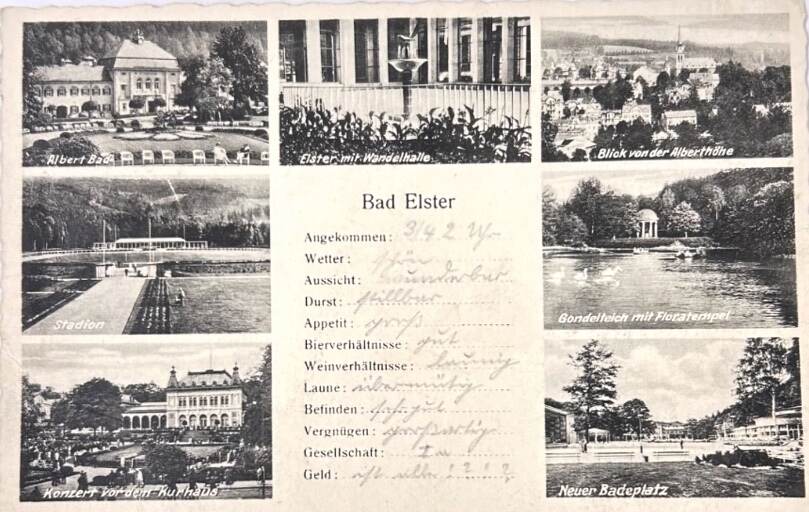 Albert Bad
Elster mit Wandelhalle
Blick von der Alberthöhe
Stadion
Gondelteich mit Floratempel
Konzert vor dem Kurhaus
Neuer Badeplatz
Bad Elster
Angekommen: 3/4 2 Uhr
Wetter: schön
Aussicht: wunderbar
Durst: stillbar
Appetit: groß
Bierverhältnisse: gut
Weinverhältnisse: launig
Laune: übermütig
Befinden: sehr gut
Vergnügen: großartig
Gesellschaft: Ia
Geld: ist alle ! ? ! ?